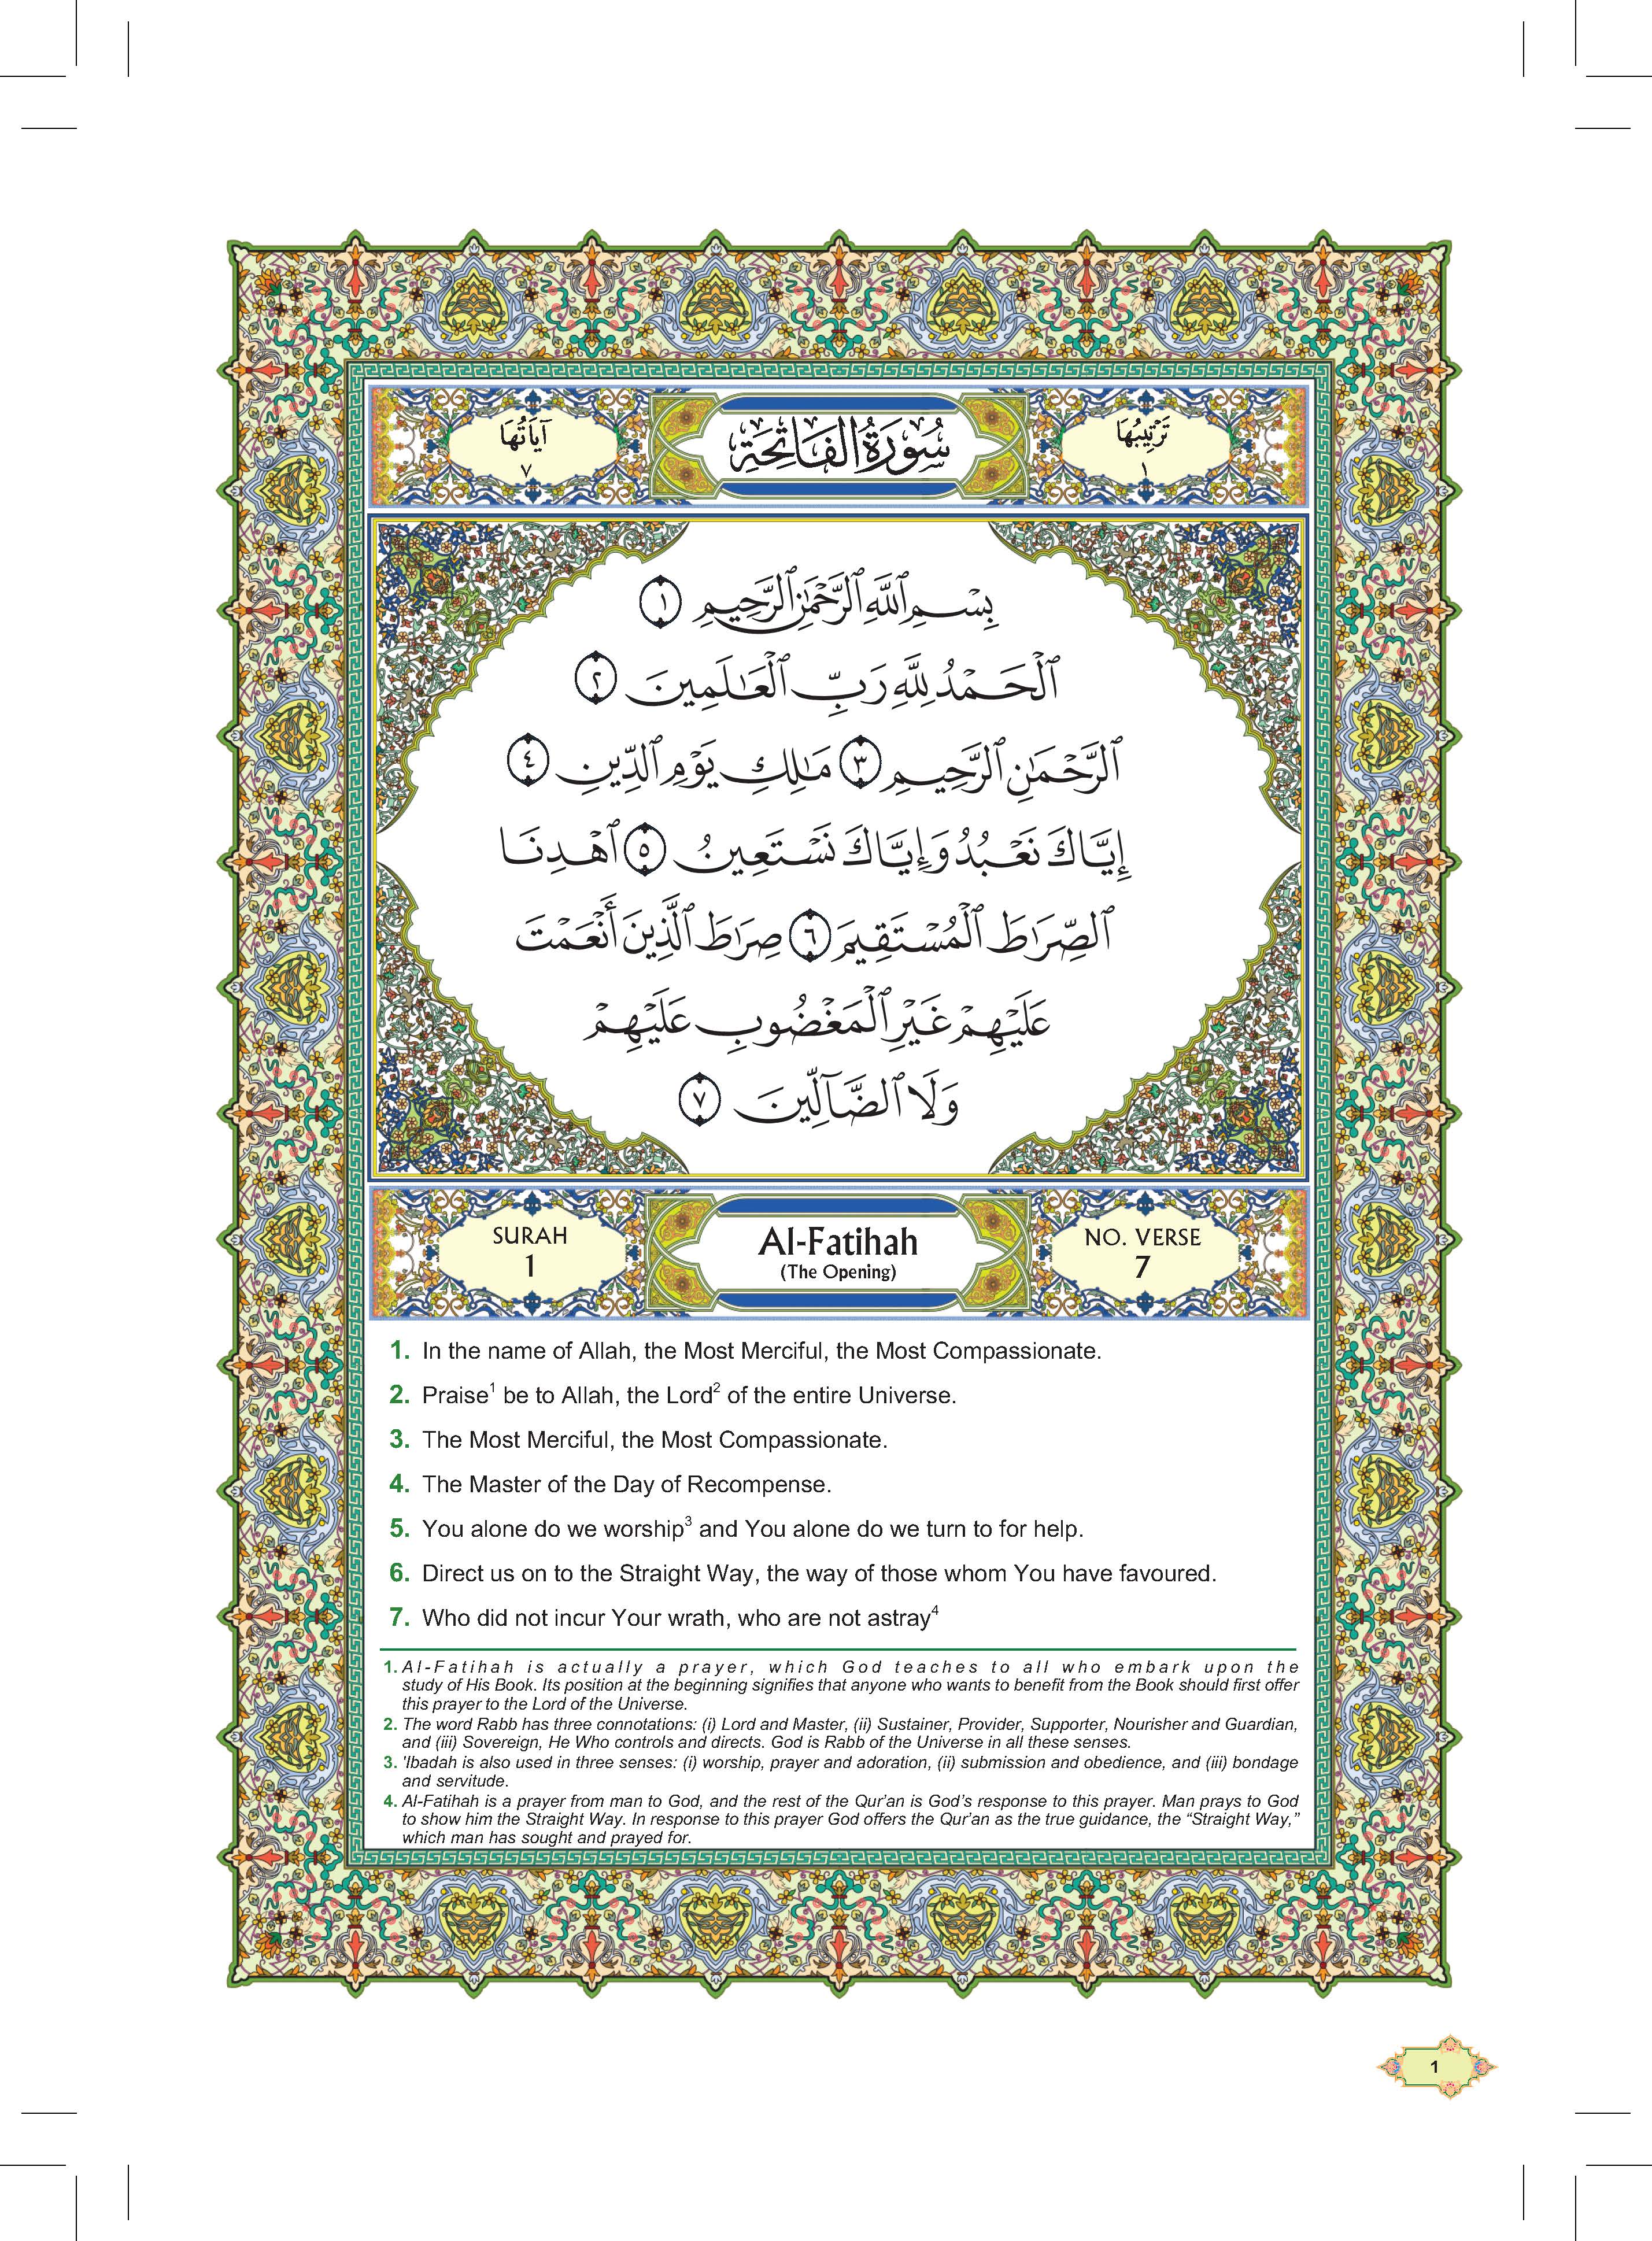 ترتيبها
١
سُورَةُ الفَاتِحَةِ
آيَاتُهَا
٧
بِسْمِ ٱللَّهِ ٱلرَّحْمَٰنِ ٱلرَّحِيمِ ١
ٱلْحَمْدُ لِلَّهِ رَبِّ ٱلْعَٰلَمِينَ ٢
ٱلرَّحْمَٰنِ ٱلرَّحِيمِ ٣ مَٰلِكِ يَوْمِ ٱلدِّينِ ٤
إِيَّاكَ نَعْبُدُ وَإِيَّاكَ نَسْتَعِينُ ٥ ٱهْدِنَا
ٱلصِّرَٰطَ ٱلْمُسْتَقِيمَ ٦ صِرَٰطَ ٱلَّذِينَ أَنْعَمْتَ
عَلَيْهِمْ غَيْرِ ٱلْمَغْضُوبِ عَلَيْهِمْ
وَلَا ٱلضَّآلِّينَ ٧
SURAH
1
Al-Fatihah
(The Opening)
NO. VERSE
7
1. In the name of Allah, the Most Merciful, the Most Compassionate.
2. Praise¹ be to Allah, the Lord² of the entire Universe.
3. The Most Merciful, the Most Compassionate.
4. The Master of the Day of Recompense.
5. You alone do we worship³ and You alone do we turn to for help.
6. Direct us on to the Straight Way, the way of those whom You have favoured.
7. Who did not incur Your wrath, who are not astray⁴
1. Al-Fatihah is actually a prayer, which God teaches to all who embark upon the
study of His Book. Its position at the beginning signifies that anyone who wants to benefit from the Book should first offer
this prayer to the Lord of the Universe.
2. The word Rabb has three connotations: (i) Lord and Master, (ii) Sustainer, Provider, Supporter, Nourisher and Guardian,
and (iii) Sovereign, He Who controls and directs. God is Rabb of the Universe in all these senses.
3. 'Ibadah is also used in three senses: (i) worship, prayer and adoration, (ii) submission and obedience, and (iii) bondage
and servitude.
4. Al-Fatihah is a prayer from man to God, and the rest of the Qur’an is God’s response to this prayer. Man prays to God
to show him the Straight Way. In response to this prayer God offers the Qur’an as the true guidance, the “Straight Way,”
which man has sought and prayed for.
1